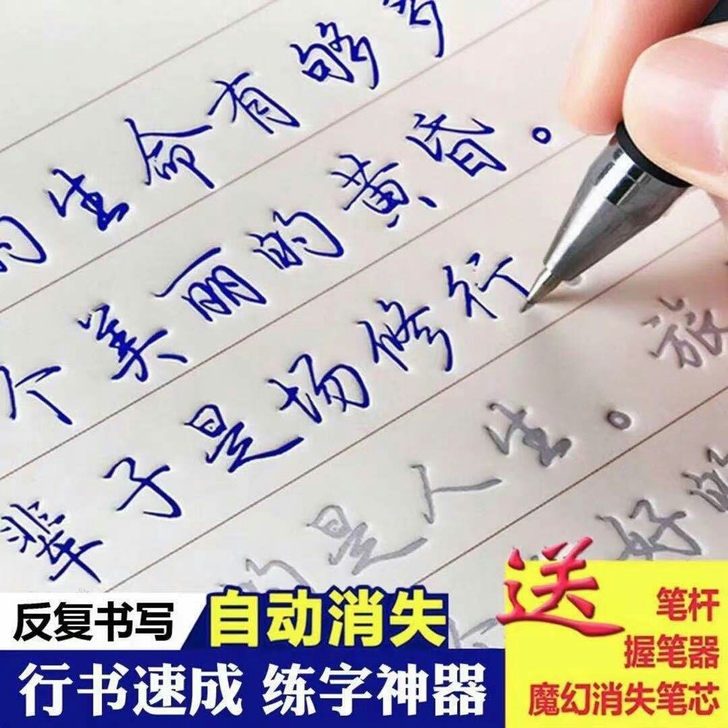 的生命有够多
个美丽的黄昏。
辈子是场修行
的是人生。旅
好的
反复书写
自动消失
行书速成 练字神器
送
笔杆
握笔器
魔幻消失笔芯